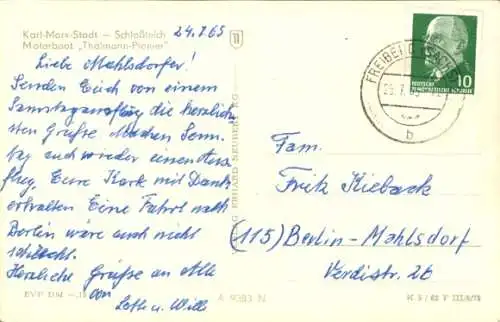 Karl-Marx-Stadt — Schloßteich
Motorboot „Thälmann-Pionier"
24.7.65
Liebe Mahlsdorfer!
Senden Euch von einem
Samstagausflug die herzlich-
sten Grüße. Machen Sonn-
tag auch wieder einen Aus-
flug, Eure Kart mit Dank
erhalten. Eine Fahrt nach
Berlin wäre auch nicht
schlecht.
Herzliche Grüße an Alle
von
Loth. u. Willi
EVP DM
A 9083 N
VERLAG ERHARD NEUBERT KG
FREIBERG (SACHS)
25.7.65
b
DEUTSCHE
DEMOKRATISCHE REPUBLIK
10
Fam.
Fritz Kieback
(115) Berlin-Mahlsdorf
Verdistr. 26